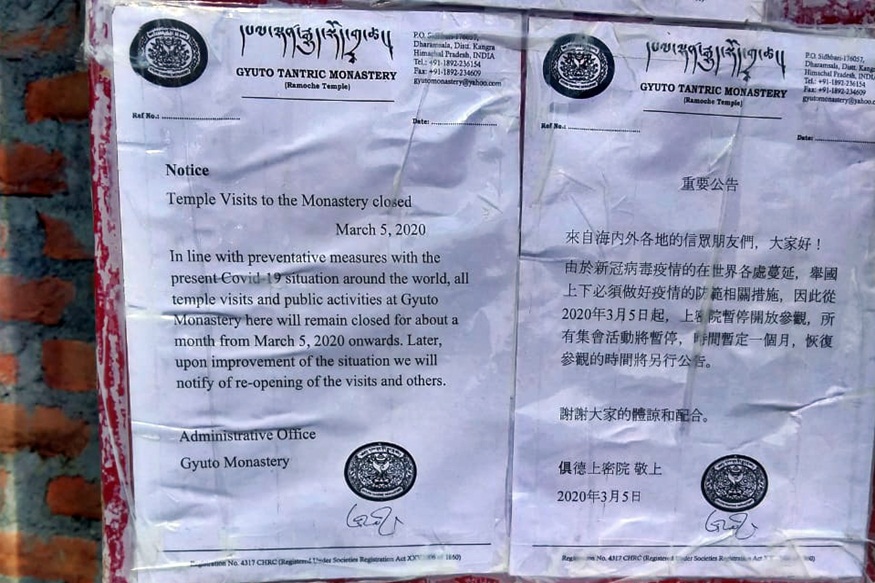 GYUTO TANTRIC MONASTERY
(Ramoche Temple)
P.O. Sidhbari-176057,
Dharamsala, Distt. Kangra
Himachal Pradesh, INDIA
Tel.: +91-1892-236154
Fax: +91-1892-234609
gyutomonastery@yahoo.com
Ref No.:
Date:
Notice
Temple Visits to the Monastery closed
March 5, 2020
In line with preventative measures with the
present Covid-19 situation around the world, all
temple visits and public activities at Gyuto
Monastery here will remain closed for about a
month from March 5, 2020 onwards. Later,
upon improvement of the situation we will
notify of re-opening of the visits and others.
Administrative Office
Gyuto Monastery
Registration No. 4317 CHRC (Registered Under Societies Registration Act of 1860)
GYUTO TANTRIC MONASTERY
(Ramoche Temple)
P.O. Sidhbari-176057,
Dharamsala, Distt. Kangra
Himachal Pradesh, INDIA
Tel.: +91-1892-236154
Fax: +91-1892-234609
gyutomonastery@yahoo.com
Ref No.:
Date:
重要公告
來自海內外各地的信眾朋友們，大家好！
由於新冠病毒疫情的在世界各處蔓延，舉國
上下必須做好疫情的防範相關措施，因此從
2020年3月5日起，上密院暫停開放參觀，所
有集會活動將暫停，時間暫定一個月，恢復
參觀的時間將另行公告。
謝謝大家的體諒和配合。
俱德上密院 敬上
2020年3月5日
Registration No. 4317 CHRC (Registered Under Societies Registration Act of 1860)